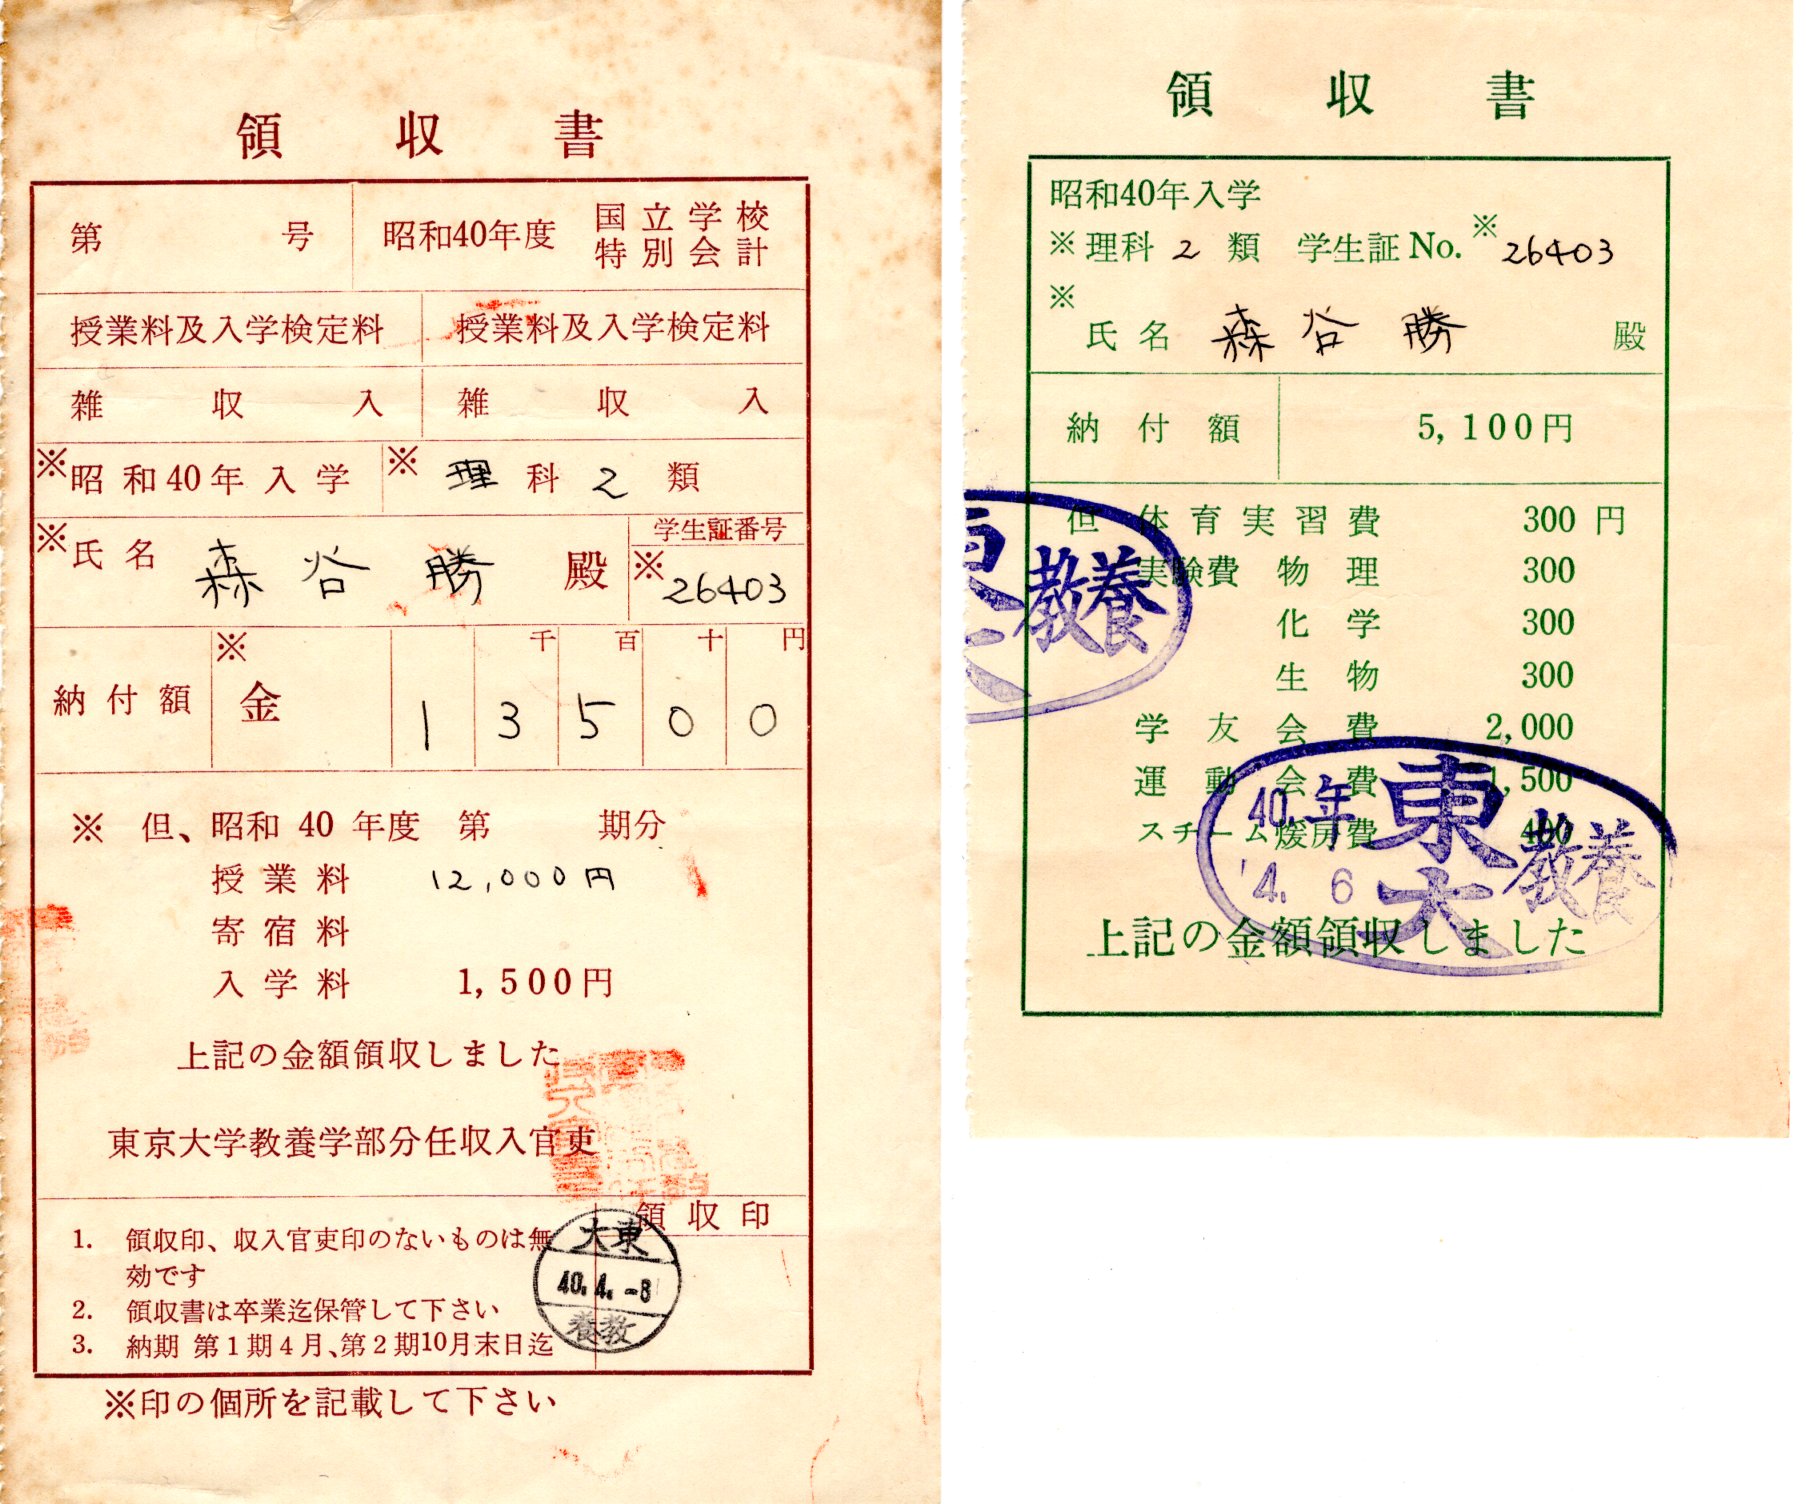 領収書
第 号 昭和40年度 国立学校特別会計
授業料及入学検定料 授業料及入学検定料
雑収入 雑収入
※昭和40年入学 ※理科2類
※氏名 森谷勝 殿 学生証番号 ※26403
納付額 ※金 千百十円
13500
※ 但、昭和 40 年度 第 期分
授業料 12,000円
寄宿料
入学料 1,500円
上記の金額領収しました
東京大学教養学部分任収入官吏
領収印
1. 領収印、収入官吏印のないものは無
効です
2. 領収書は卒業迄保管して下さい
3. 納期 第1期4月、第2期10月末日迄
東大
40.4.-8
教養
※印の個所を記載して下さい
領収書
昭和40年入学
※理科 2 類 学生証 No. ※26403
※
氏名 森谷勝 殿
納付額 5,100円
但 体育実習費 300円
実験費 物理 300
化学 300
生物 300
学友会費 2,000
運動会費 1,500
スチーム煖房費 400
上記の金額領収しました
教養
40.年 東大 教養
'4. 6